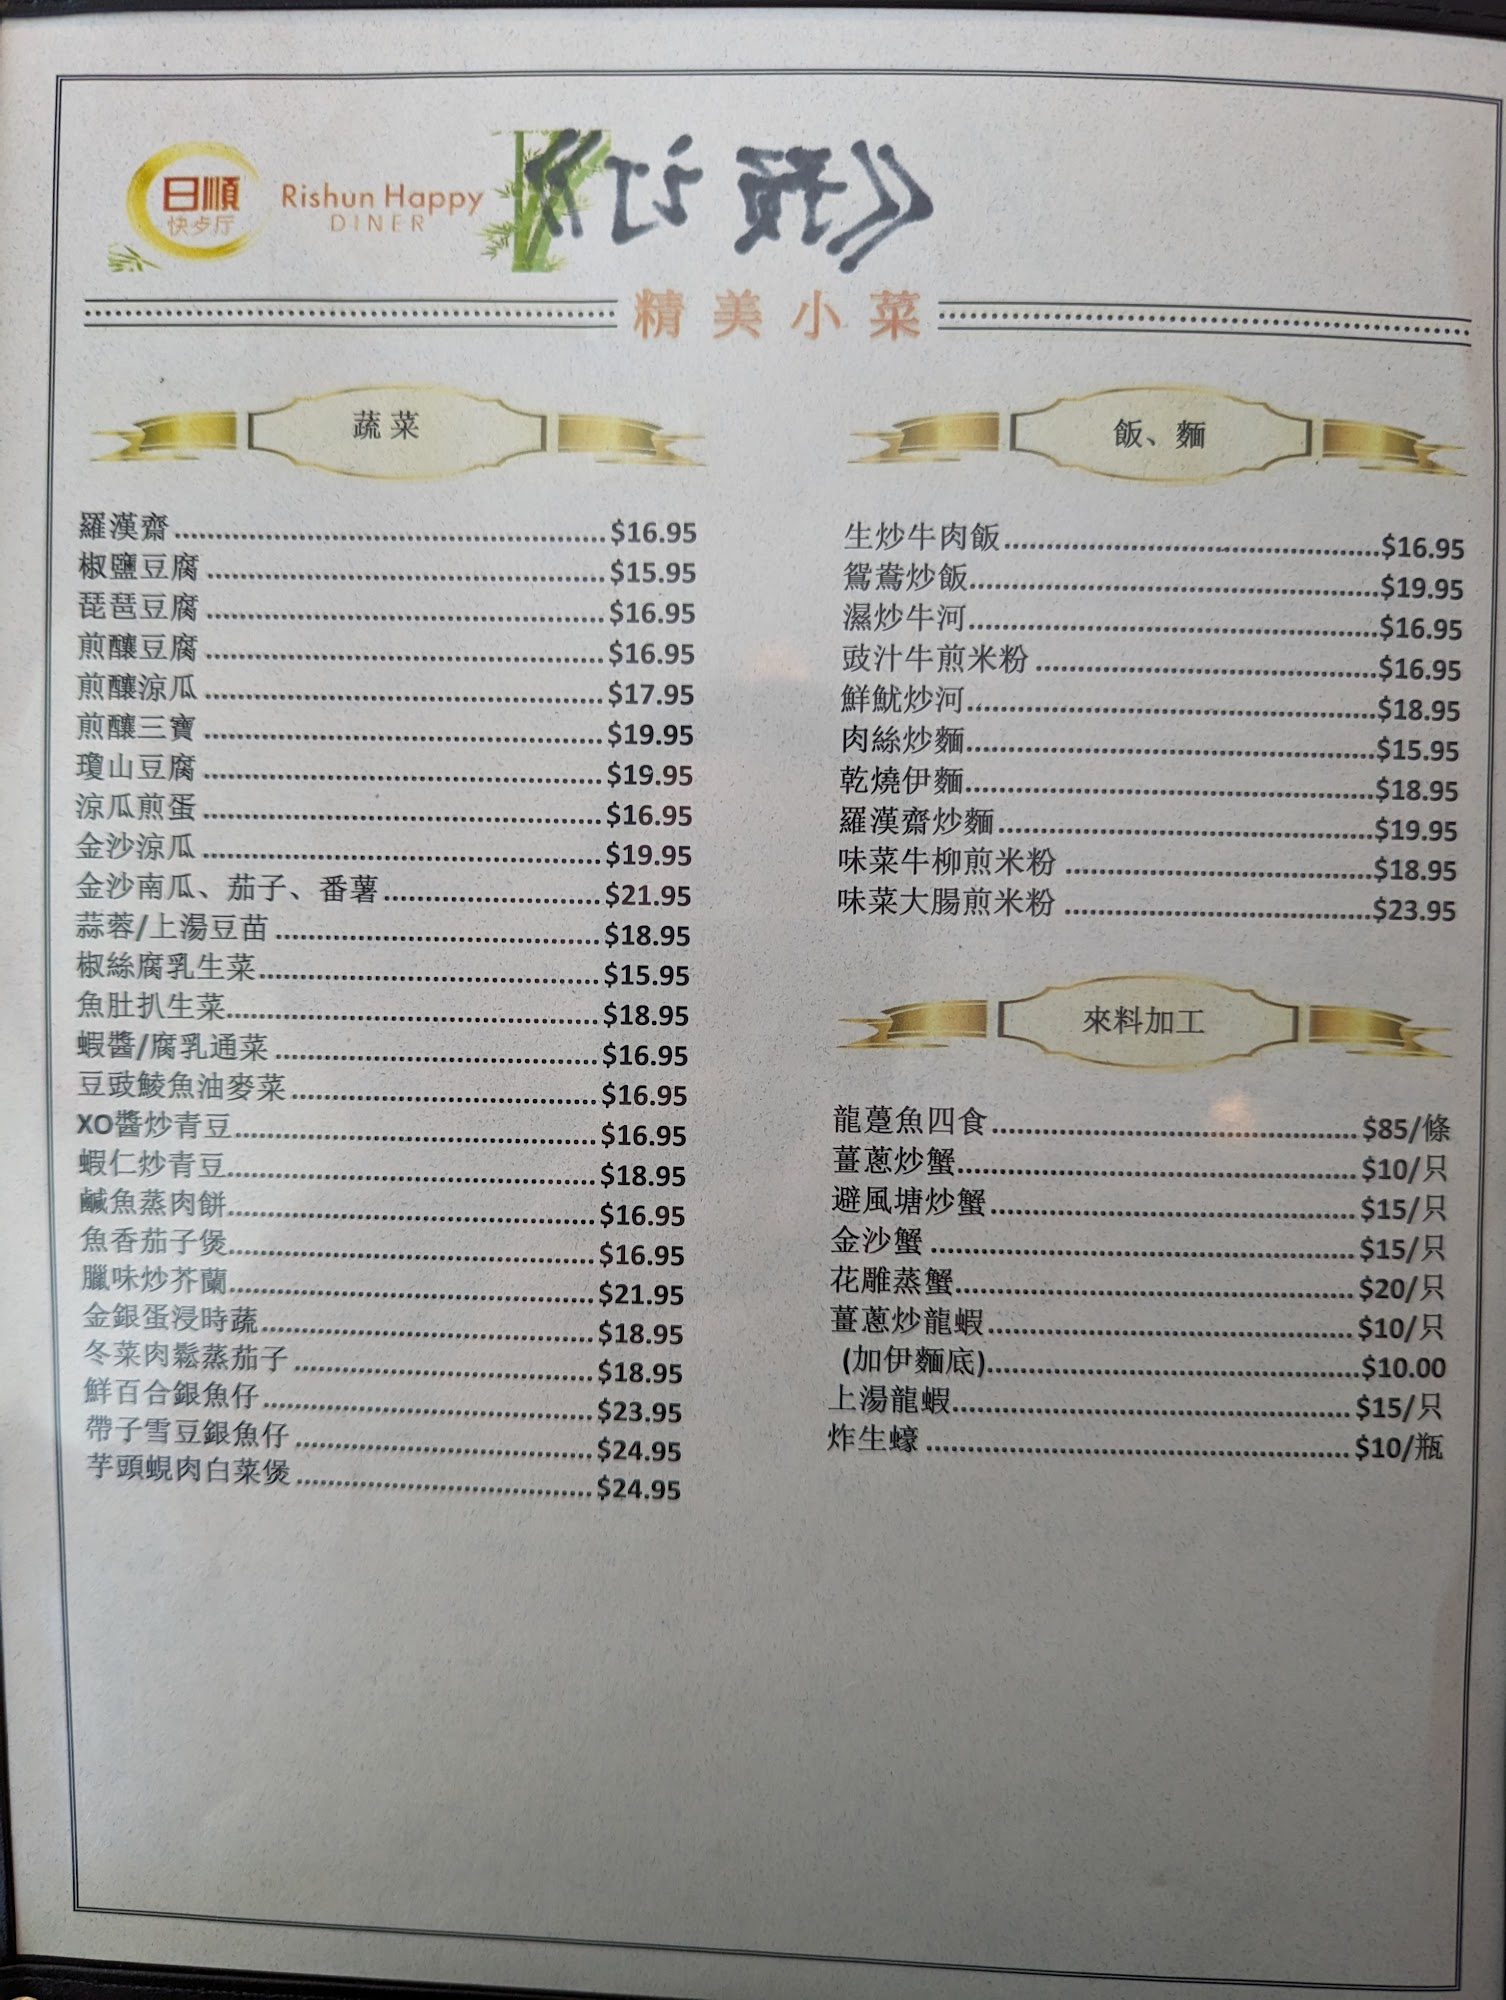 日順
快歺厅
Rishun Happy
DINER
《预订》
精美小菜
蔬菜
羅漢齋 $16.95
椒鹽豆腐 $15.95
琵琶豆腐 $16.95
煎釀豆腐 $16.95
煎釀涼瓜 $17.95
煎釀三寶 $19.95
瓊山豆腐 $19.95
涼瓜煎蛋 $16.95
金沙涼瓜 $19.95
金沙南瓜、茄子、番薯 $21.95
蒜蓉/上湯豆苗 $18.95
椒絲腐乳生菜 $15.95
魚肚扒生菜 $18.95
蝦醬/腐乳通菜 $16.95
豆豉鯪魚油麥菜 $16.95
XO醬炒青豆 $16.95
蝦仁炒青豆 $18.95
鹹魚蒸肉餅 $16.95
魚香茄子煲 $16.95
臘味炒芥蘭 $21.95
金銀蛋浸時蔬 $18.95
冬菜肉鬆蒸茄子 $18.95
鮮百合銀魚仔 $23.95
帶子雪豆銀魚仔 $24.95
芋頭蜆肉白菜煲 $24.95
飯、麵
生炒牛肉飯 $16.95
鴛鴦炒飯 $19.95
濕炒牛河 $16.95
豉汁牛煎米粉 $16.95
鮮魷炒河 $18.95
肉絲炒麵 $15.95
乾燒伊麵 $18.95
羅漢齋炒麵 $19.95
味菜牛柳煎米粉 $18.95
味菜大腸煎米粉 $23.95
來料加工
龍躉魚四食 $85/條
薑蔥炒蟹 $10/只
避風塘炒蟹 $15/只
金沙蟹 $15/只
花雕蒸蟹 $20/只
薑蔥炒龍蝦 $10/只
(加伊麵底) $10.00
上湯龍蝦 $15/只
炸生蠔 $10/瓶